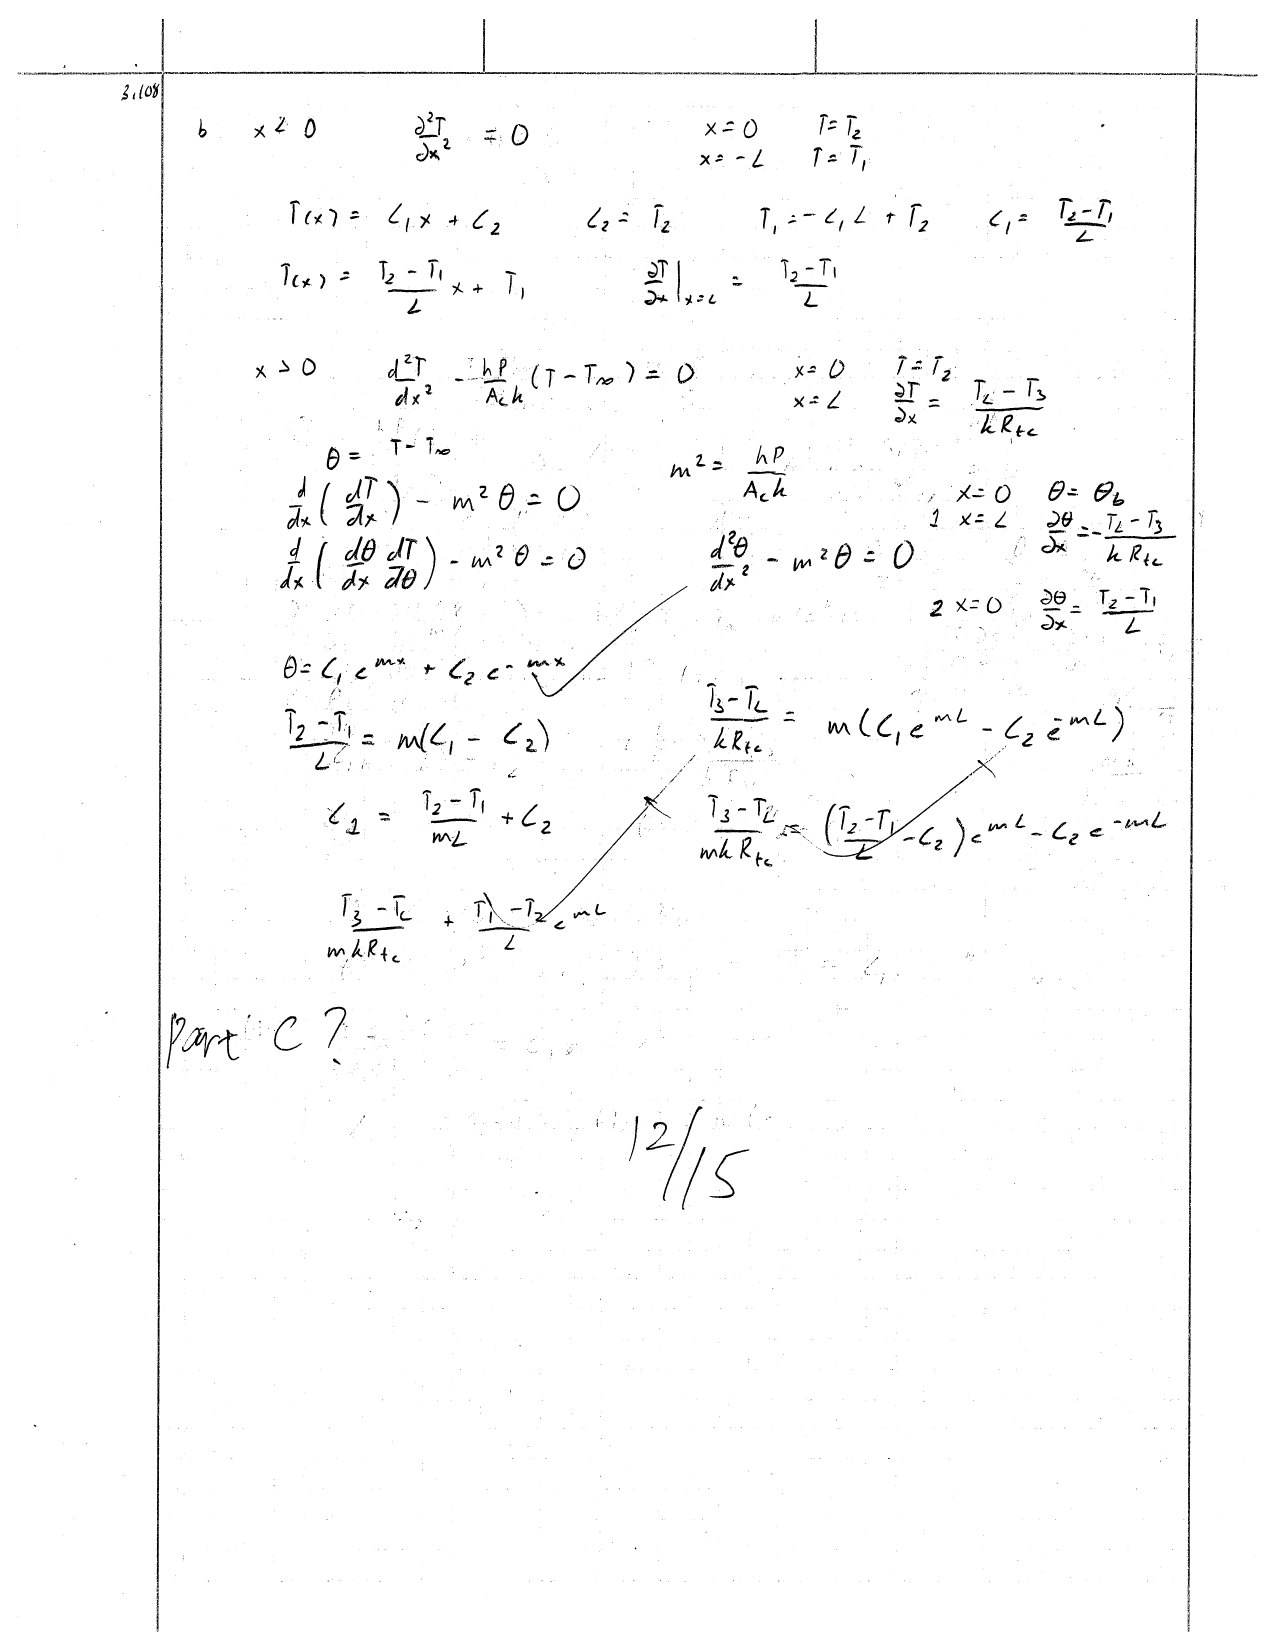 3.108
b x < 0 ∂²T/∂x² = 0 x = 0 T = T₂
x = -L T = T₁
T(x) = C₁x + C₂ C₂ = T₂ T₁ = -C₁L + T₂ C₁ = (T₂ - T₁)/L
T(x) = (T₂ - T₁)/L x + T₁ ∂T/∂x|x=L = (T₂ - T₁)/L
x > 0 d²T/dx² - hP/(A_c k) (T - T∞) = 0 x = 0 T = T₂
x = L ∂T/∂x = (T_L - T₃)/(k R_tc)
θ = T - T∞ m² = hP/(A_c k)
x = 0 θ = θ_b
d/dx (dT/dx) - m²θ = 0 1 x = L ∂θ/∂x = -(T_L - T₃)/(k R_tc)
d/dx (dθ/dx dT/dθ) - m²θ = 0 d²θ/dx² - m²θ = 0
2 x = 0 ∂θ/∂x = (T₂ - T₁)/L
θ = C₁e^mx + C₂e^-mx
(T₂ - T₁)/L = m(C₁ - C₂) (T₃ - T_L)/(k R_tc) = m(C₁e^mL - C₂e^-mL)
C₁ = (T₂ - T₁)/(mL) + C₂ (T₃ - T_L)/(mk R_tc) = ((T₂ - T₁)/L - C₂)e^mL - C₂e^-mL
(T₃ - T_L)/(mk R_tc) + (T₁ - T₂)/L e^mL
Part C?
12/15